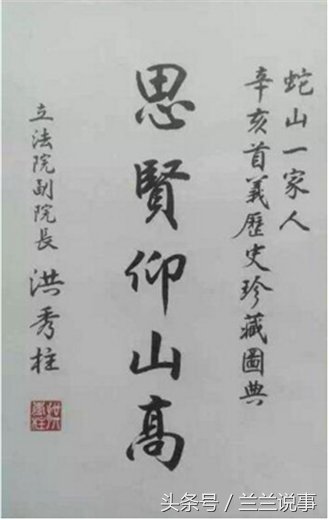 蛇山一家人
辛亥首義歷史珍藏圖典
思賢仰山高
立法院副院長 洪秀柱
头条号 / 兰兰说事